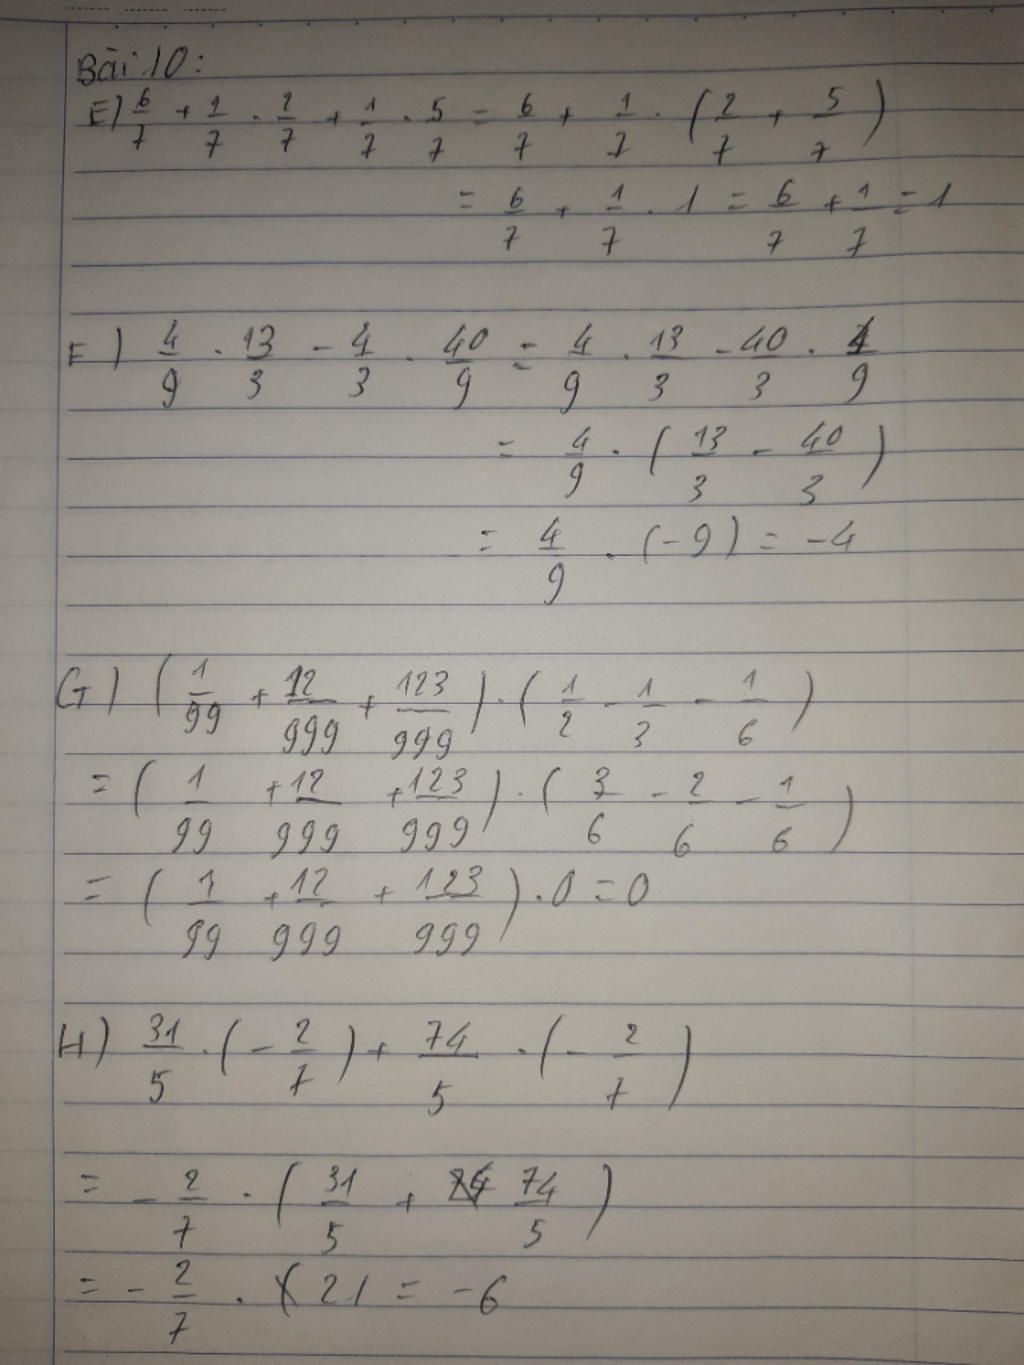 Bài 10:
E) 6/7 + 1/7 . 2/7 + 1/7 . 5/7 = 6/7 + 1/7 . (2/7 + 5/7)
= 6/7 + 1/7 . 1 = 6/7 + 1/7 = 1
F) 4/9 . 13/3 - 4/3 . 40/9 = 4/9 . 13/3 - 40/3 . 4/9
= 4/9 . (13/3 - 40/3)
= 4/9 . (-9) = -4
G) (1/99 + 12/999 + 123/999) . (1/2 - 1/3 - 1/6)
= (1/99 + 12/999 + 123/999) . (3/6 - 2/6 - 1/6)
= (1/99 + 12/999 + 123/999) . 0 = 0
H) 31/5 . (-2/7) + 74/5 . (-2/7)
= -2/7 . (31/5 + 74/5)
= -2/7 . 21 = -6